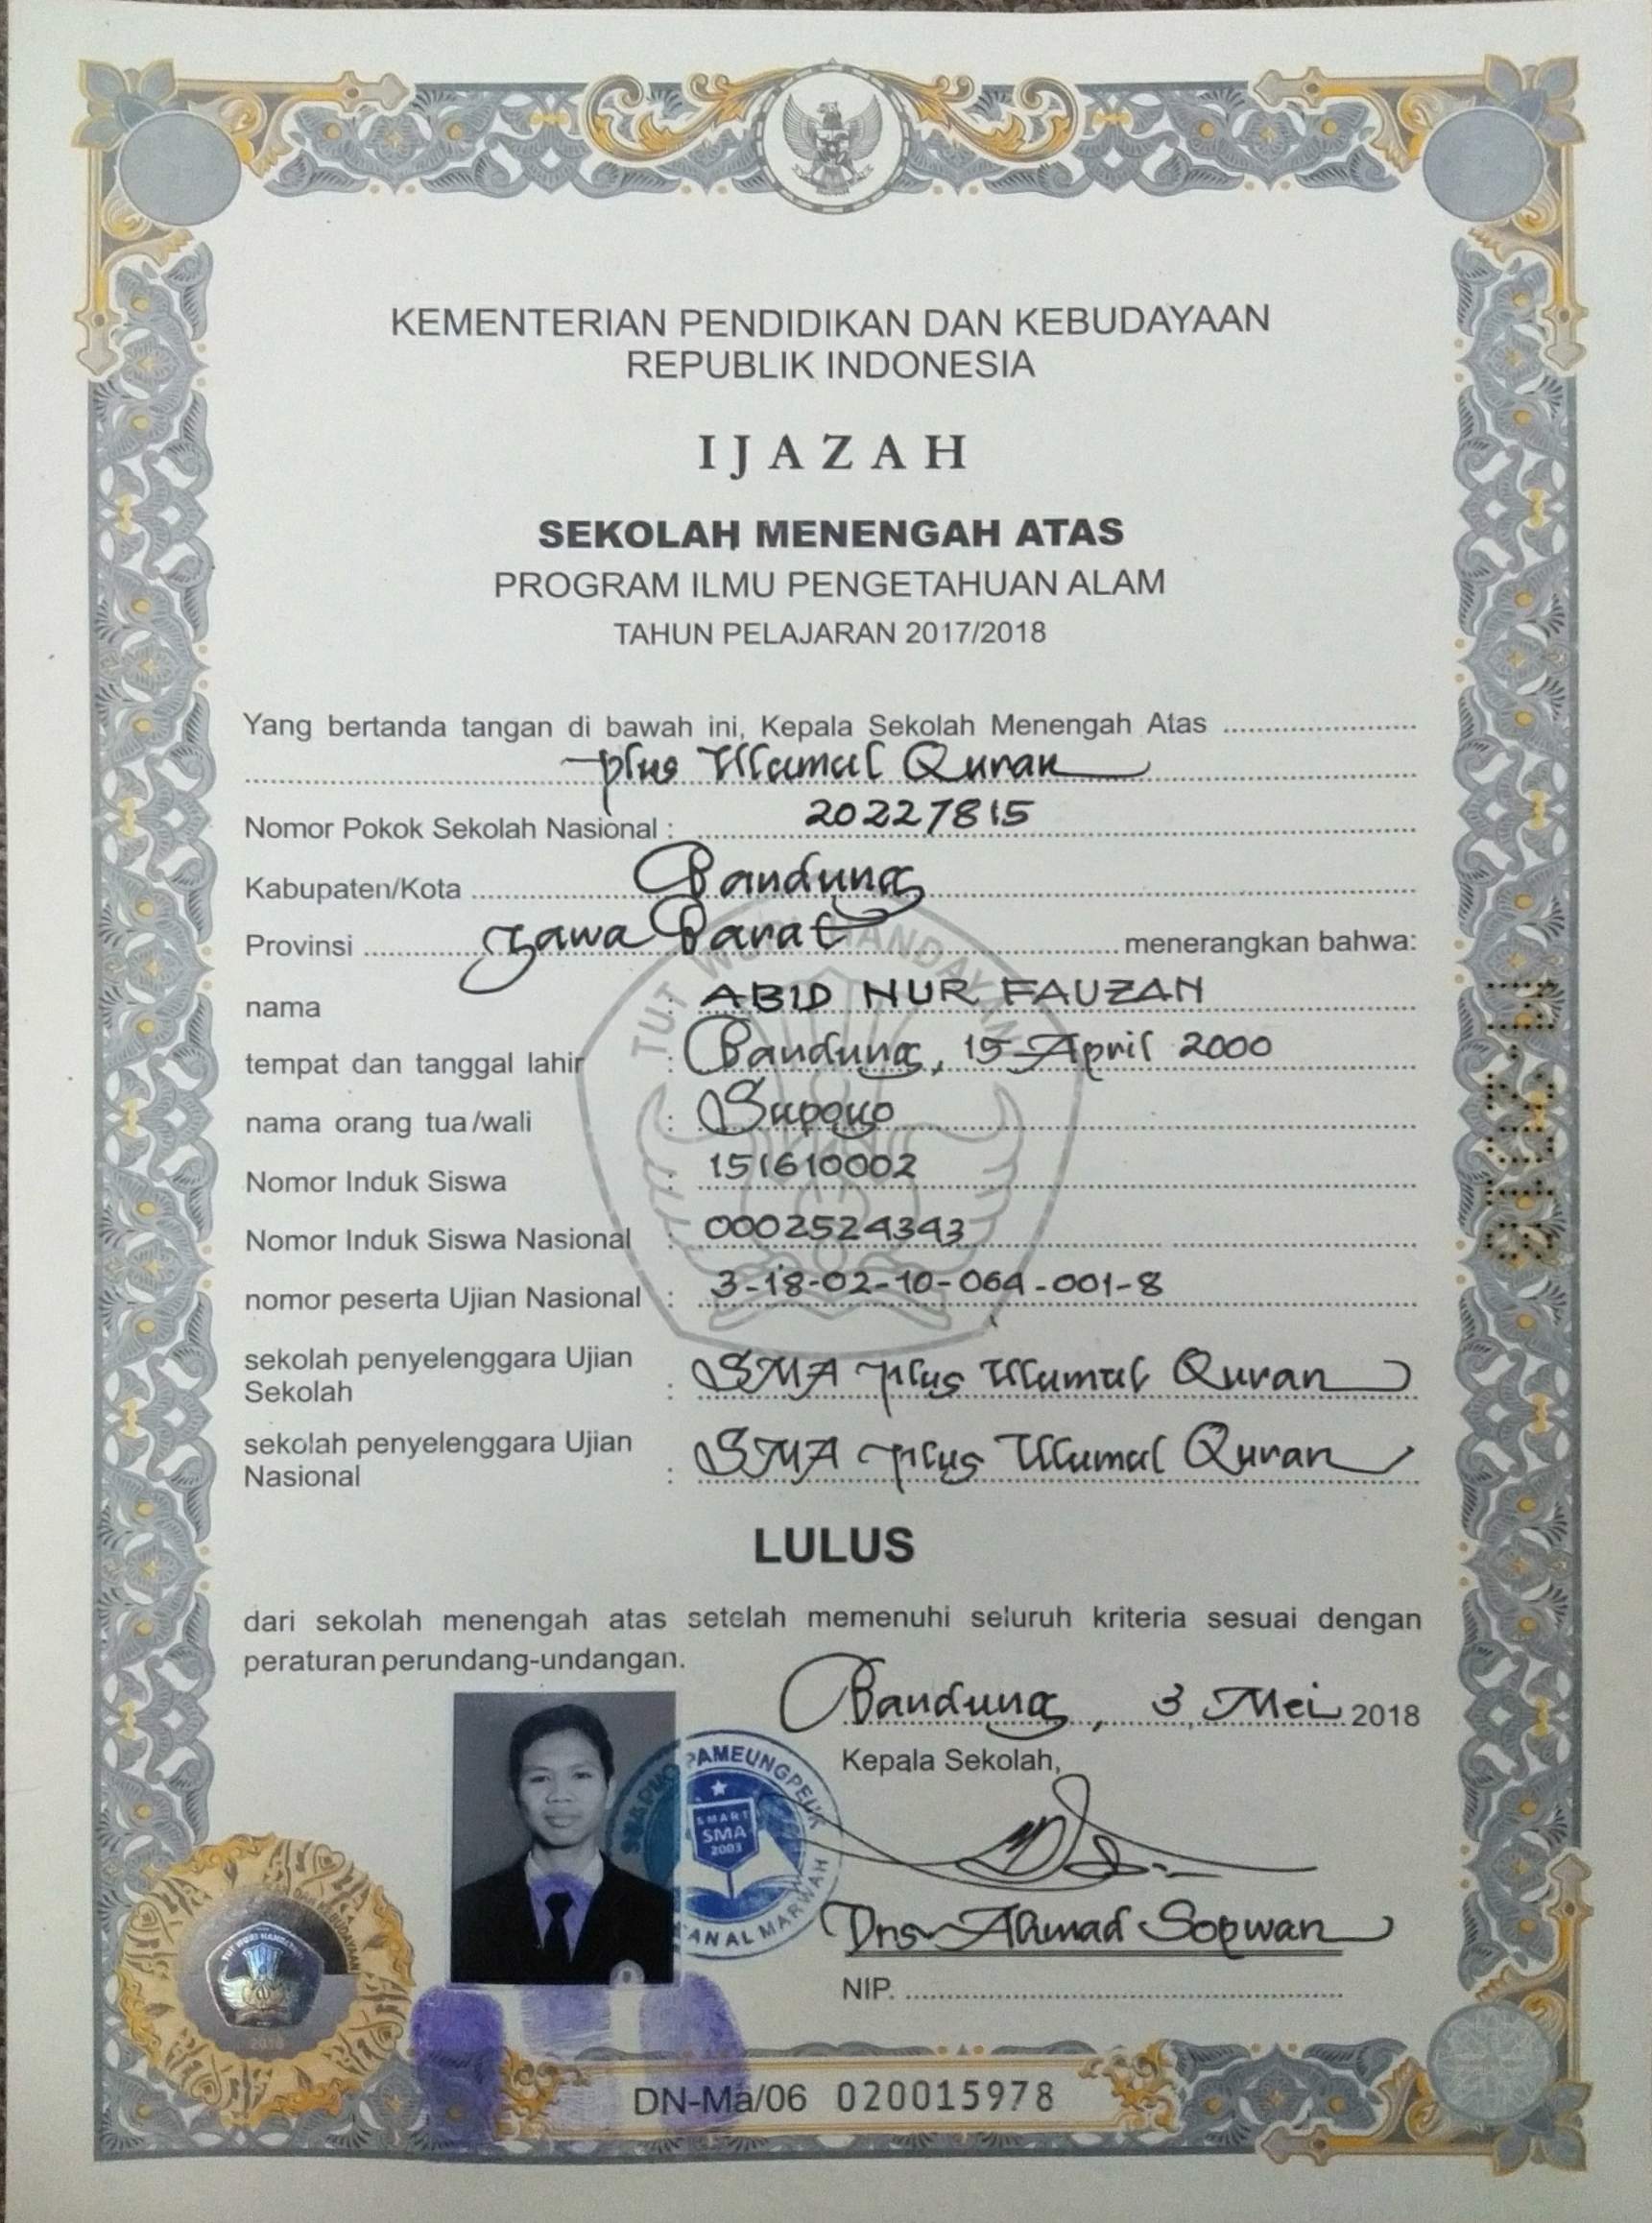 KEMENTERIAN PENDIDIKAN DAN KEBUDAYAAN
REPUBLIK INDONESIA
IJAZAH
SEKOLAH MENENGAH ATAS
PROGRAM ILMU PENGETAHUAN ALAM
TAHUN PELAJARAN 2017/2018
Yang bertanda tangan di bawah ini, Kepala Sekolah Menengah Atas
plus Ulumul Quran
Nomor Pokok Sekolah Nasional : 20227815
Kabupaten/Kota Bandung
Provinsi Jawa Barat menerangkan bahwa:
nama : ABID NUR FAUZAN
tempat dan tanggal lahir : Bandung, 15 April 2000
nama orang tua/wali : Supoyo
Nomor Induk Siswa : 151610002
Nomor Induk Siswa Nasional : 0002524343
nomor peserta Ujian Nasional : 3-18-02-10-064-001-8
sekolah penyelenggara Ujian
Sekolah : SMA plus Ulumul Quran
sekolah penyelenggara Ujian
Nasional : SMA plus Ulumul Quran
LULUS
dari sekolah menengah atas setelah memenuhi seluruh kriteria sesuai dengan
peraturan perundang-undangan.
Bandung, 3 Mei 2018
Kepala Sekolah,
PAMEUNGPEUK
SMART
SMA
2003
AL MARWAH
Drs Ahmad Sopwan
NIP.
TUT WURI HANDAYANI
2018
DN-Ma/06 020015978